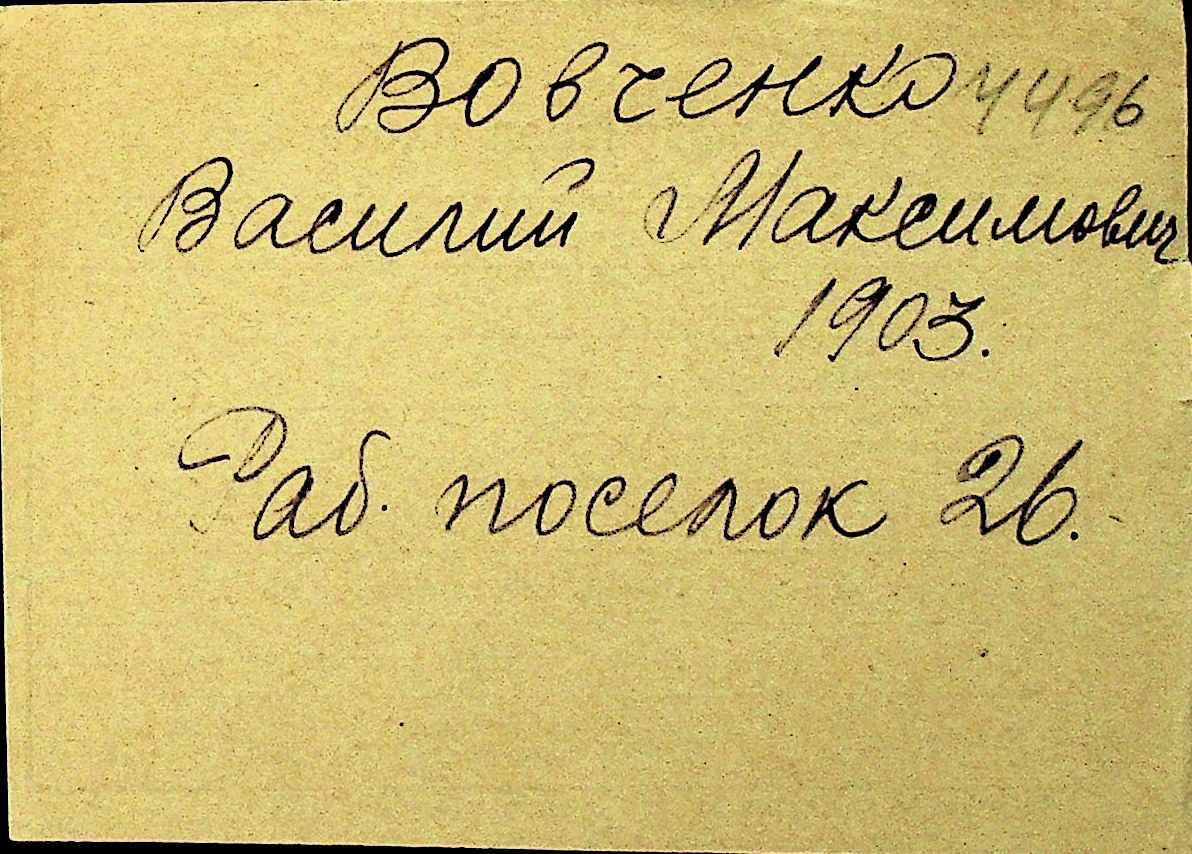 Вовченко 4496
Василий Максимович
1903.
Раб. поселок 26.